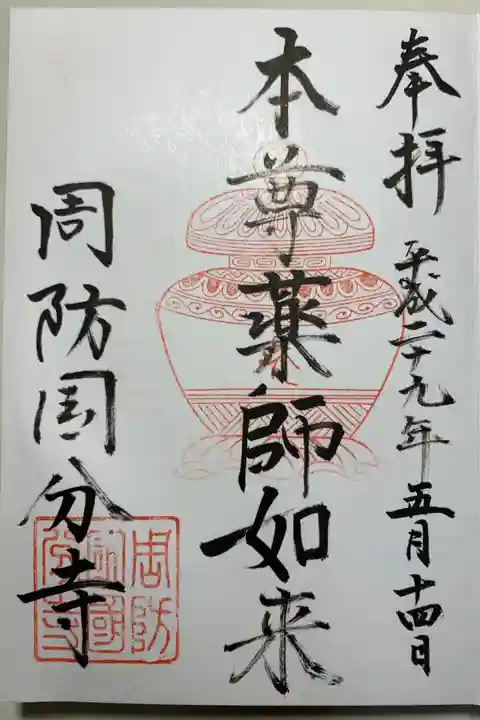 奉拝 平成二十九年五月十四日
本尊薬師如来
周防国分寺
周防
國分寺